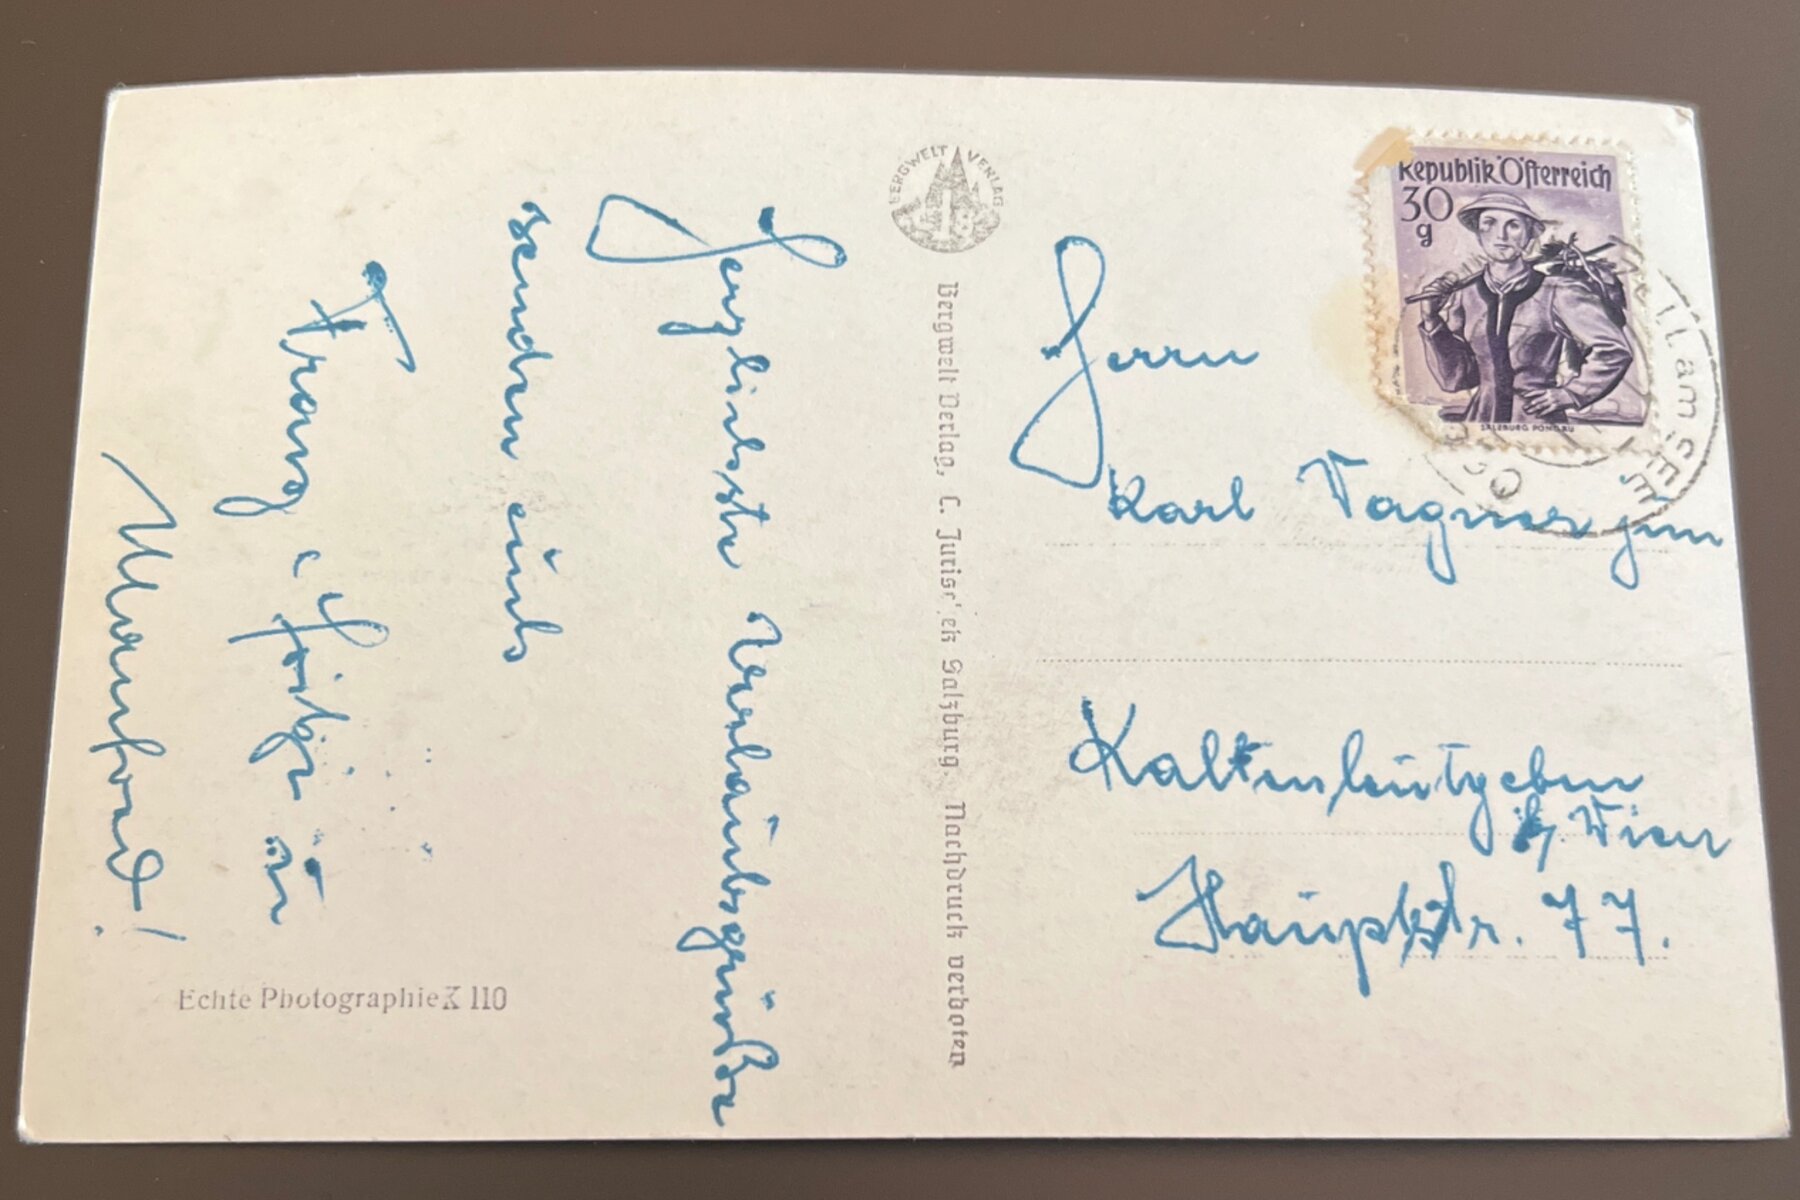 Herzlichste Urlaubsgrüße
senden euch
Franz
BERGWELT VERLAG
Bergwelt Verlag, C. Jurischek Salzburg. Nachdruck verboten
Republik Österreich
30
g
SALZBURG PONGAU
ZELL AM SEE
Herrn
Karl Wagner jun
Kaltenleutgeben
b/ Wien
Hauptstr. 77.
Echte Photographie K 110